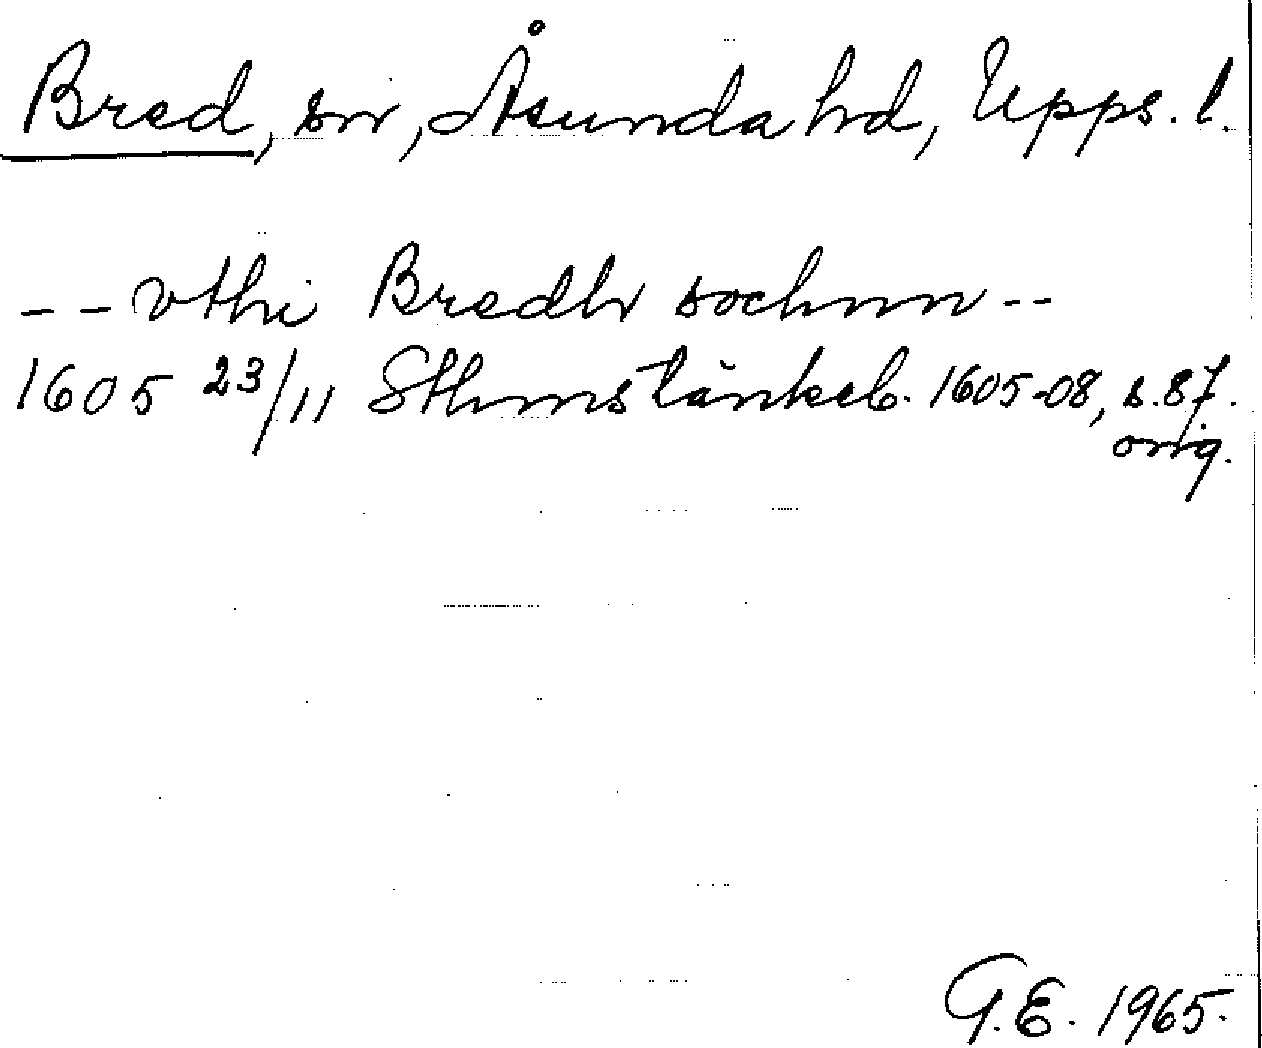 Bred, sn, Åsunda hd, Upps. l.
-- vthi Bredh sochnn --
1605 23/11 Sthms tänkeb. 1605-08, s. 87.
orig.
G.E. 1965.